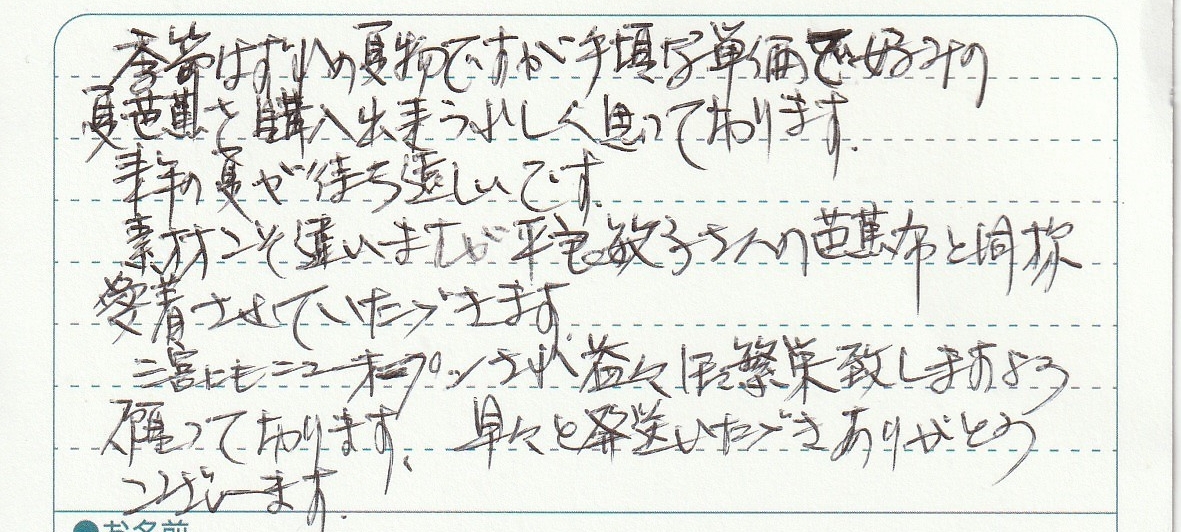 季節はずれの夏物ですが手頃な単価で好みの
夏芭蕉を購入出来うれしく思っております。
来年の夏が待ち遠しいです。
素材こそ違いますが平良敏子さんの芭蕉布と同様
愛着させていただきます。
三宮にもニューオープンされ益々ご繁栄致しますよう
願っております。早々と発送いただきありがとう
ございます。
●お名前